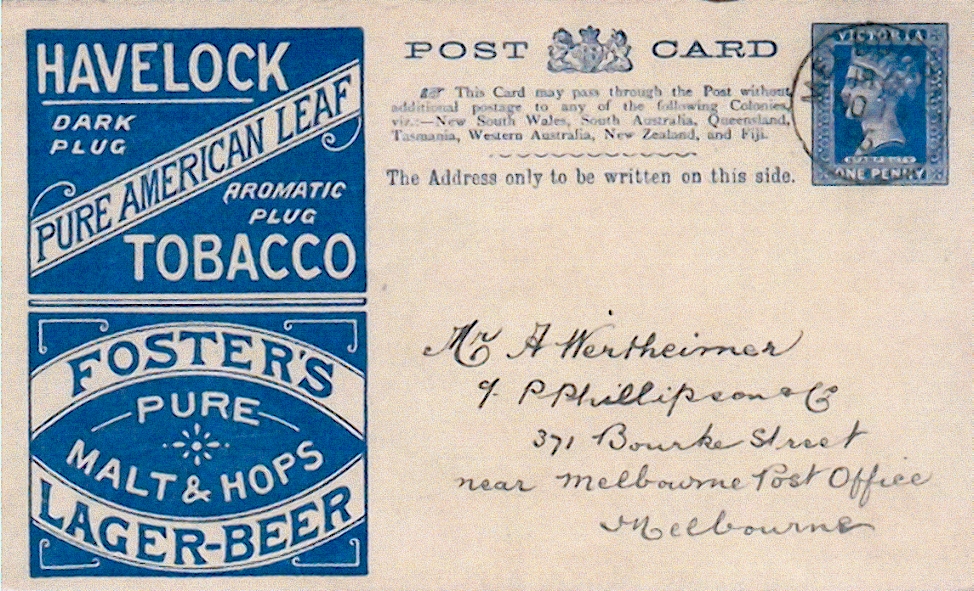 HAVELOCK
DARK
PLUG
PURE AMERICAN LEAF
AROMATIC
PLUG
TOBACCO
FOSTER'S
PURE
MALT & HOPS
LAGER-BEER
POST CARD
☞ This Card may pass through the Post without
additional postage to any of the following Colonies,
viz.:—New South Wales, South Australia, Queensland,
Tasmania, Western Australia, New Zealand, and Fiji.
The Address only to be written on this side.
VICTORIA
ONE PENNY
Mr A Wertheimer
c/- P Phillipson & Co
371 Bourke Street
near Melbourne Post Office
Melbourne